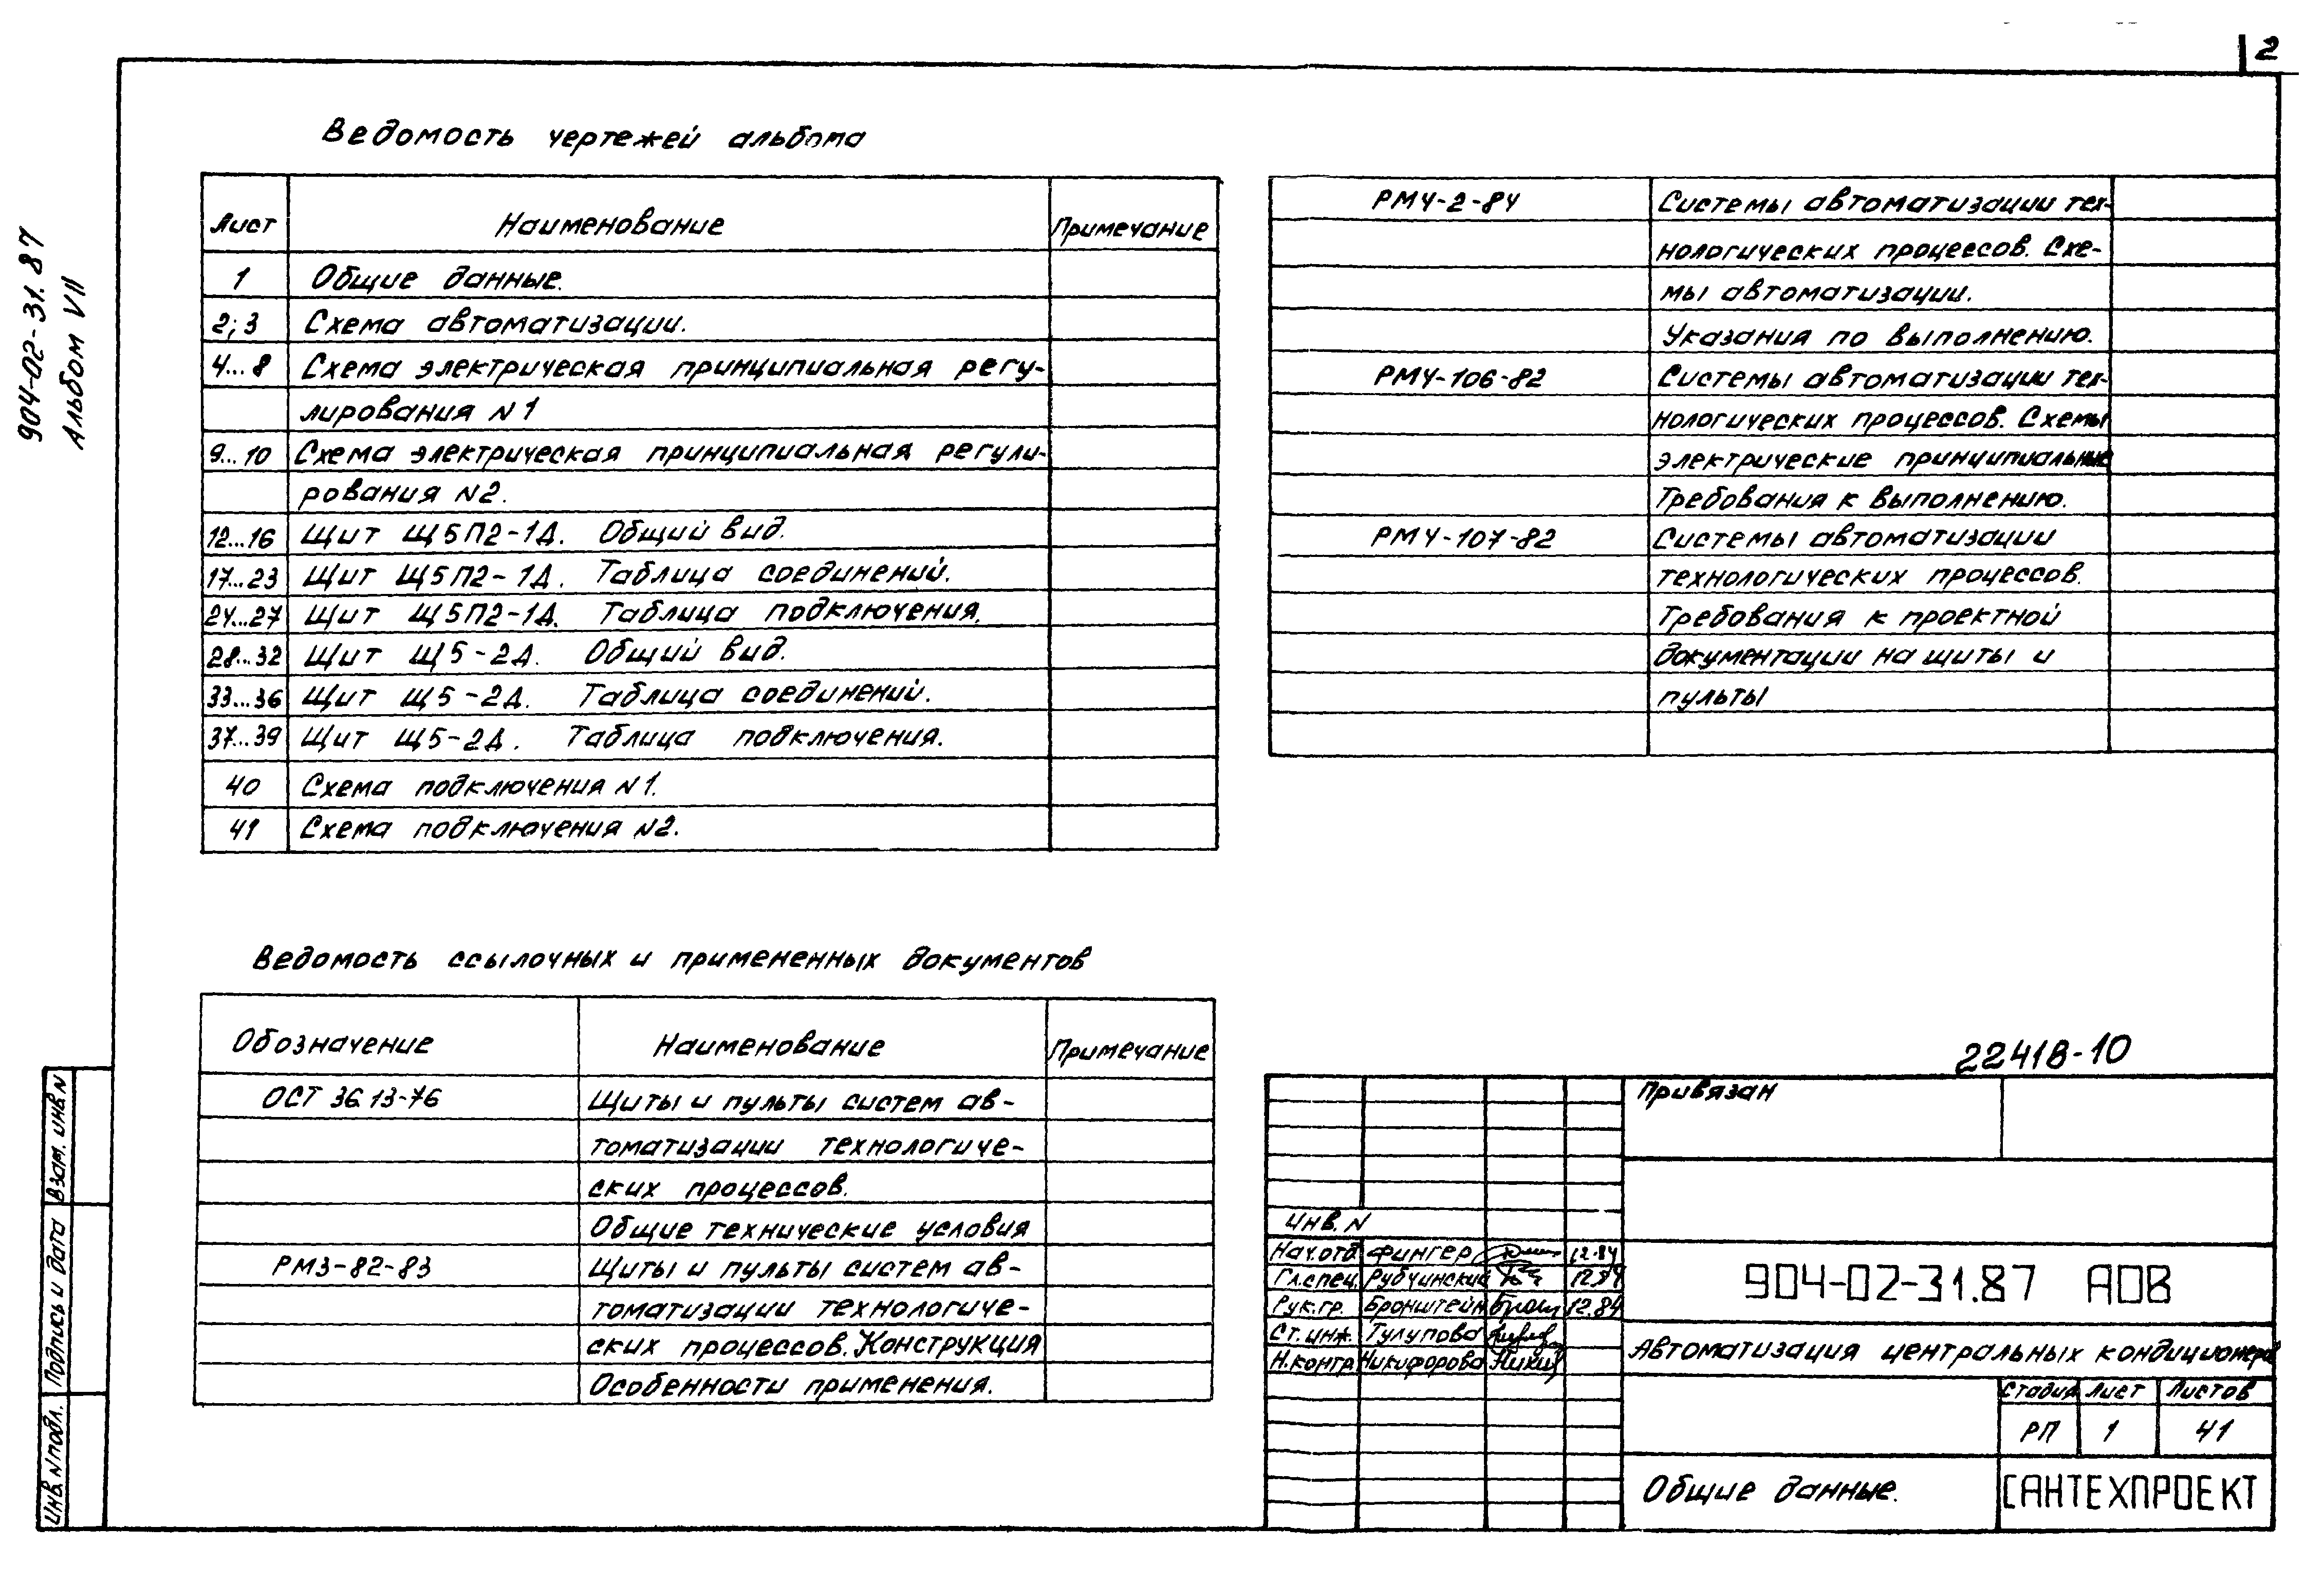 2
904-02-31.87
Альбом VII
Ведомость чертежей альбома
Лист Наименование Примечание
1 Общие данные.
2;3 Схема автоматизации.
4...8 Схема электрическая принципиальная регу-
лирования N1
9...10 Схема электрическая принципиальная регули-
рования N2.
12...16 Щит Щ5П2-1Д. Общий вид.
17...23 Щит Щ5П2-1Д. Таблица соединений.
24...27 Щит Щ5П2-1Д. Таблица подключения.
28...32 Щит Щ5-2Д. Общий вид.
33...36 Щит Щ5-2Д. Таблица соединений.
37...39 Щит Щ5-2Д. Таблица подключения.
40 Схема подключения N1.
41 Схема подключения N2.
Ведомость ссылочных и примененных документов
Обозначение Наименование Примечание
ОСТ 36.13-76 Щиты и пульты систем ав-
томатизации технологиче-
ских процессов.
Общие технические условия
РМ3-82-83 Щиты и пульты систем ав-
томатизации технологиче-
ских процессов. Конструкция
Особенности применения.
РМ4-2-84 Системы автоматизации тех-
нологических процессов. Схе-
мы автоматизации.
Указания по выполнению.
РМ4-106-82 Системы автоматизации тех-
нологических процессов. Схемы
электрические принципиальные
Требования к выполнению.
РМ4-107-82 Системы автоматизации
технологических процессов.
Требования к проектной
документации на щиты и
пульты
22418-10
Привязан
Инв. N
Нач.отд. Фингер 12.84
Гл.спец. Рубчинский 12.84
Рук.гр. Бронштейн 12.84
Ст.инж. Тулупова
Н.контр. Никифорова
904-02-31.87 АОВ
Автоматизация центральных кондиционеров
Стадия Лист Листов
РП 1 41
Общие данные.
САНТЕХПРОЕКТ
Взам. инв. N
Подпись и дата
Инв. N подл.